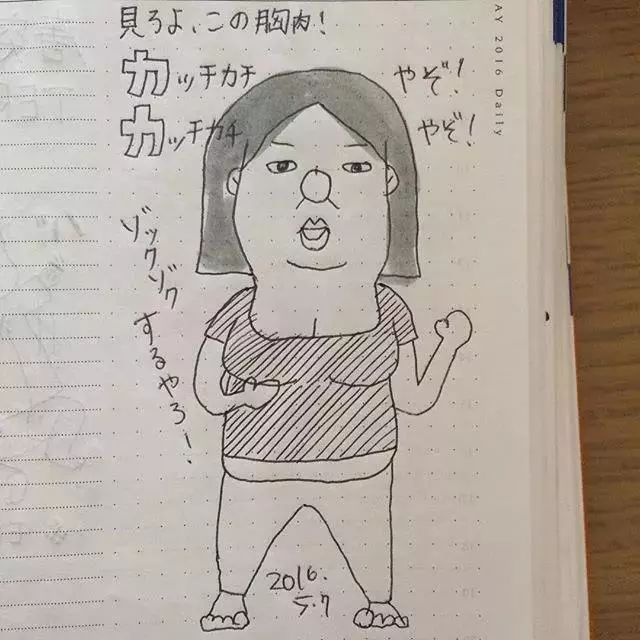 見ろよ、この胸肉!
カッチカチ やぞ!
カッチカチ やぞ!
ゾックゾク
するやろ!
2016.
5.7
AY 2016 Daily